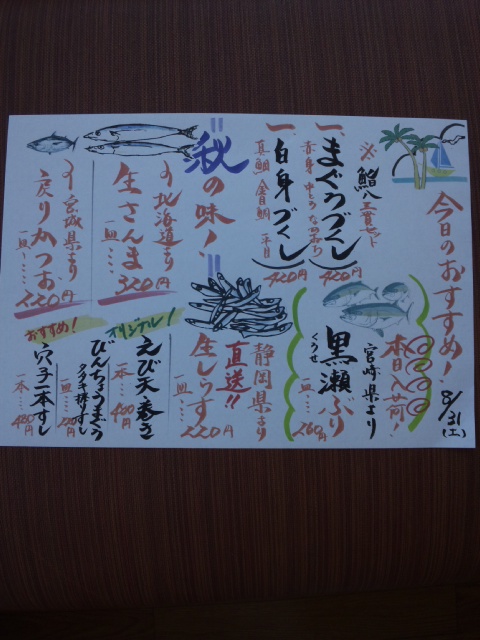 今日のおすすめ!
8/31
(土)
※鮨八三貫セット
一、まぐろづくし
赤身 中とろ ながおり
420円
一、白身づくし
真鯛 金目鯛 平目
420円
秋の味!
〜北海道より
生さんま
一皿…
320円
〜宮城県より
戻りかつお
一皿…
220円
本日入荷!
宮崎県より
黒瀬ぶり
くろせ
一皿…
260円
静岡県より
直送!!
生しらす
一皿…
220円
オリジナル!
えび天巻き
一本…
400円
びんちょうまぐろ
タタキ押すし
一皿…
おすすめ!
穴子一本すし
一本…
480円